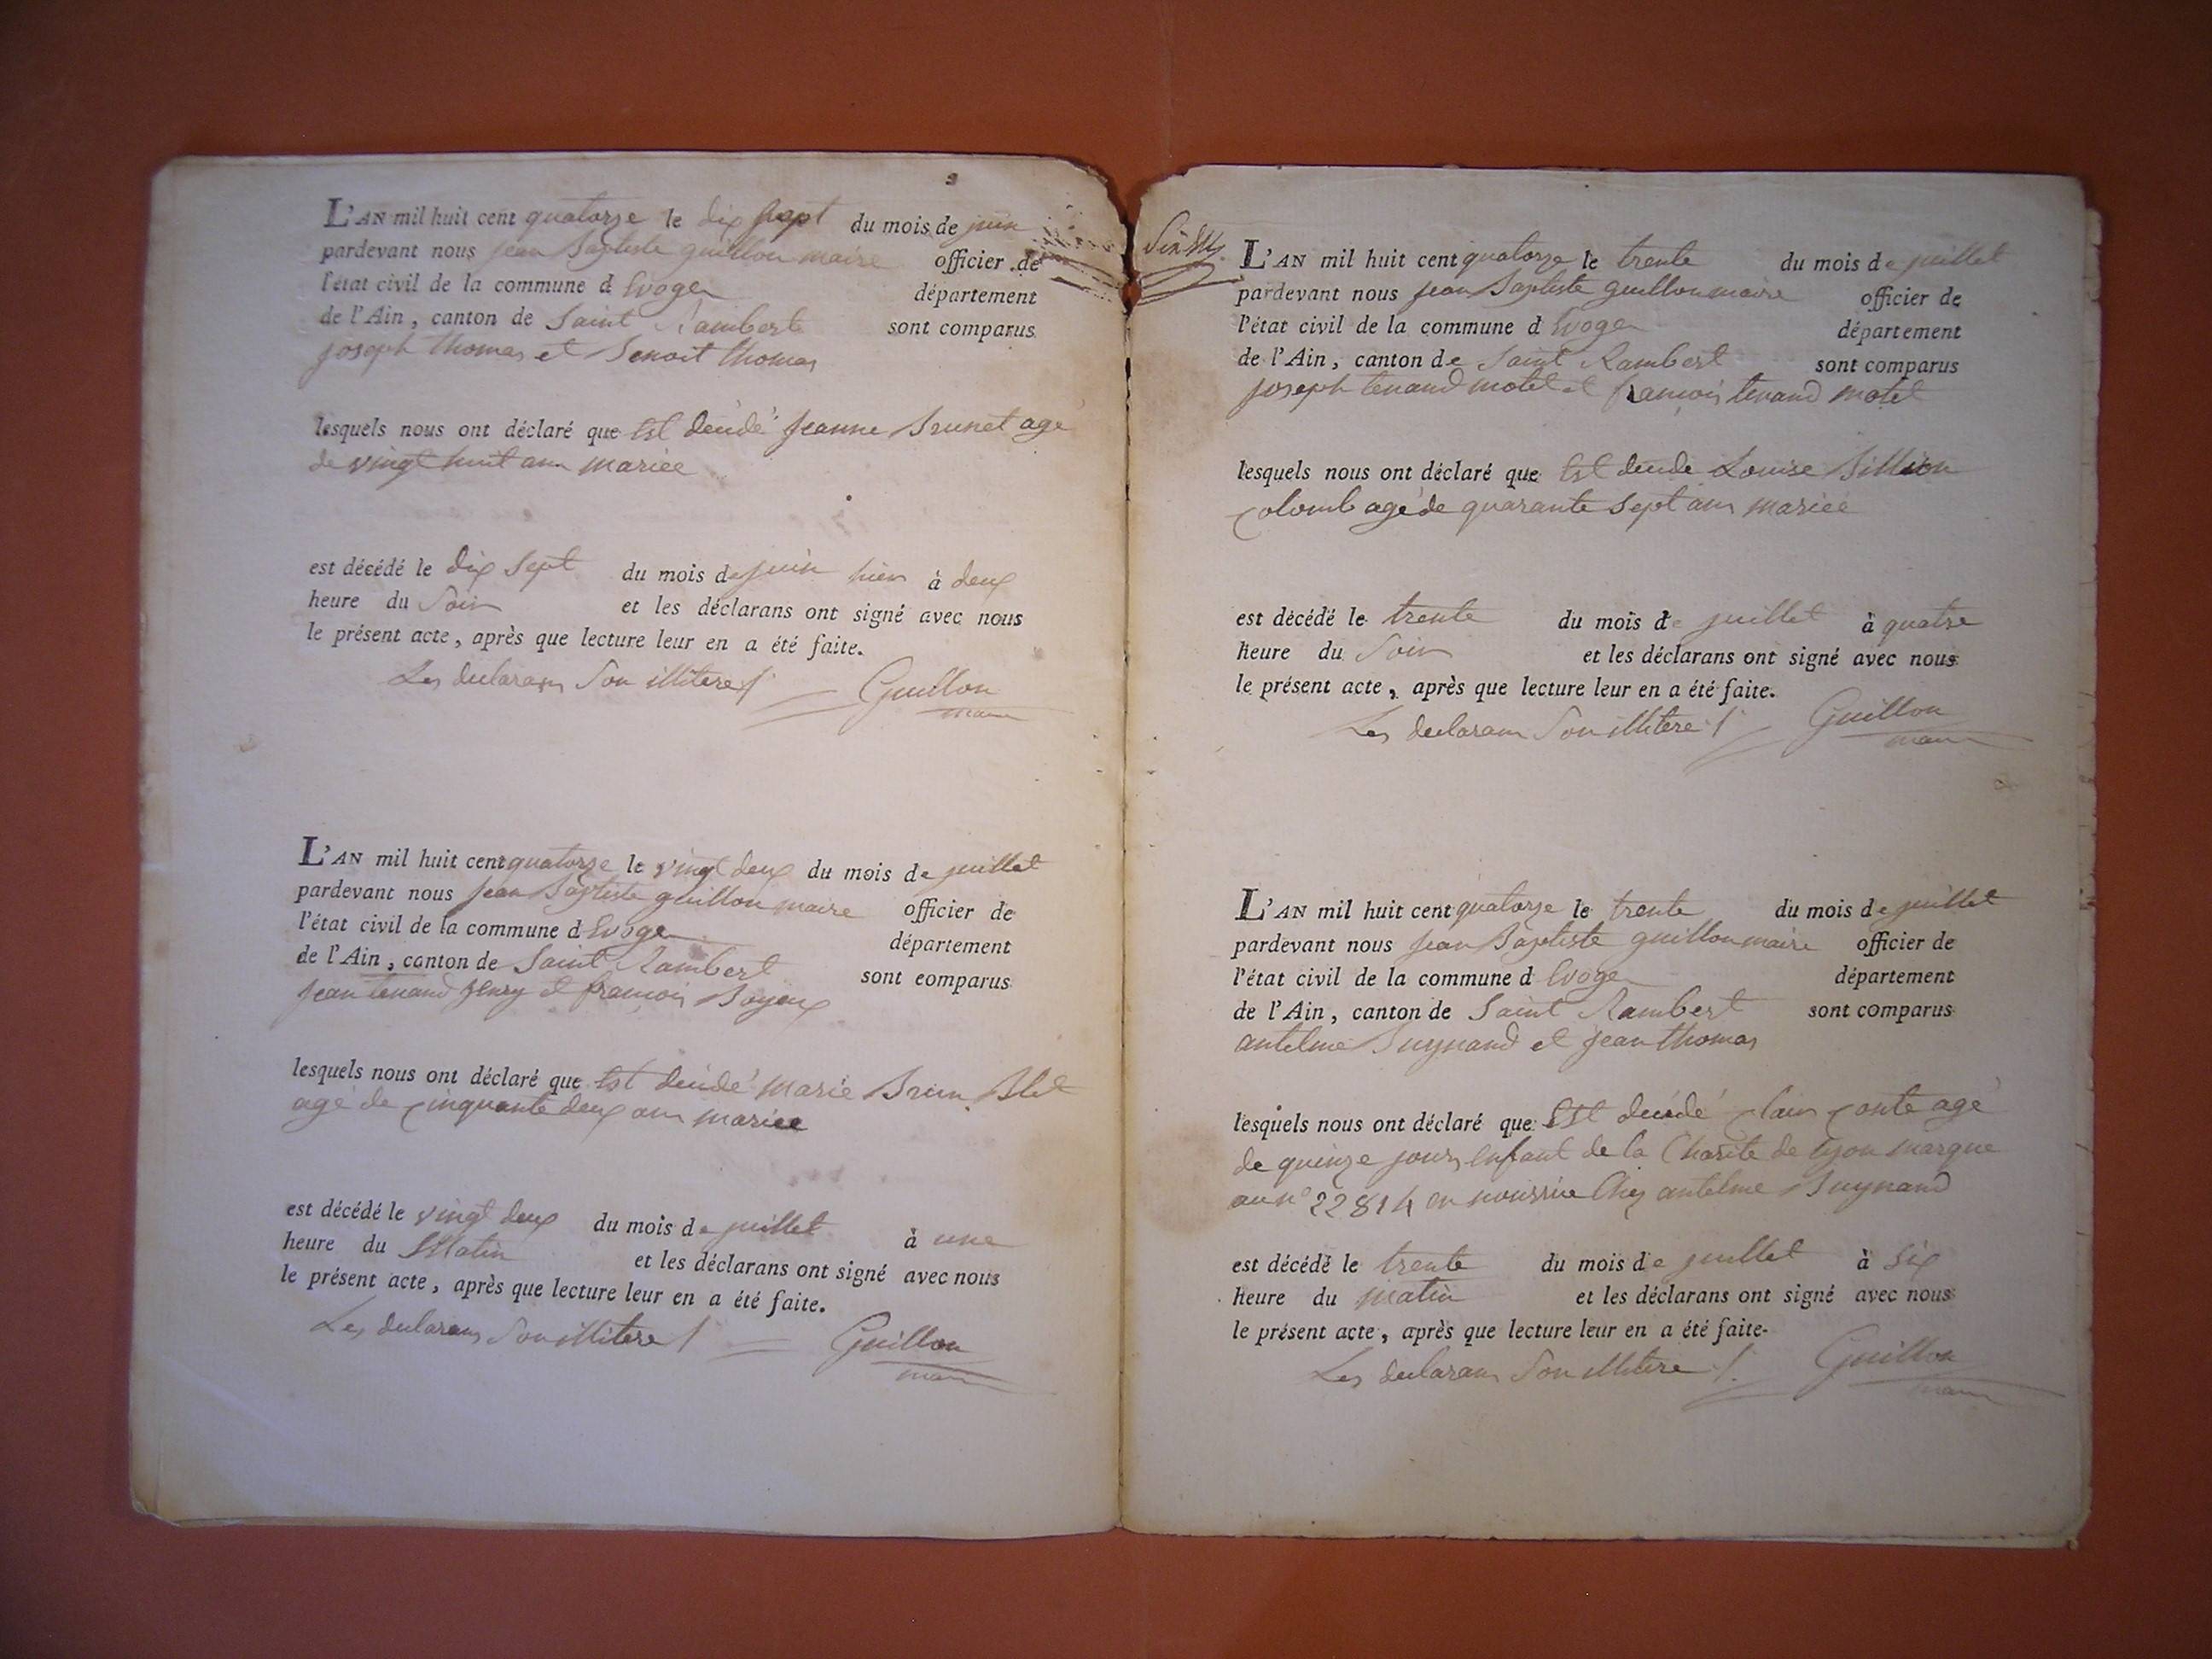 L'AN mil huit cent quatorze le dix sept du mois de juin
pardevant nous jean Baptiste guillon maire officier de
l'état civil de la commune d Evoges département
de l'Ain, canton de Saint Rambert sont comparus
joseph thomas et Benoit thomas
lesquels nous ont déclaré que Est décidé jeanne Brunet agé
de vingt huit ans mariée
est décédé le dix sept du mois de juin hier à deux
heure du Soir et les déclarans ont signé avec nous
le présent acte, après que lecture leur en a été faite.
Les declarans Son illitere Guillon
maire
L'AN mil huit cent quatorze le vingt deux du mois de juillet
pardevant nous jean Baptiste guillon maire officier de
l'état civil de la commune d Evoges département
de l'Ain, canton de Saint Rambert sont comparus
jean tenand henry et francois Boyeux
lesquels nous ont déclaré que Est décidé marie Brun Blet
agé de cinquante deux ans mariée
est décédé le vingt deux du mois de juillet à une
heure du Matin et les déclarans ont signé avec nous
le présent acte, après que lecture leur en a été faite.
Les declarans Son illitere Guillon
maire
L'AN mil huit cent quatorze le trente du mois de juillet
pardevant nous jean Baptiste guillon maire officier de
l'état civil de la commune d Evoges département
de l'Ain, canton de Saint Rambert sont comparus
joseph tenand motel et francois tenand motel
lesquels nous ont déclaré que Est décidé Louise Billion
Colomb agé de quarante sept ans mariée
est décédé le trente du mois de juillet à quatre
heure du Soir et les déclarans ont signé avec nous
le présent acte, après que lecture leur en a été faite.
Les declarans Son illitere Guillon
maire
L'AN mil huit cent quatorze le trente du mois de juillet
pardevant nous jean Baptiste guillon maire officier de
l'état civil de la commune d Evoges département
de l'Ain, canton de Saint Rambert sont comparus
antelme Buynand et jean thomas
lesquels nous ont déclaré que Est décidé Clair Conte agé
de quinze jours enfant de la Charité de Lyon marqué
au n° 22814 en nourrice Chez antelme Buynand
est décédé le trente du mois de juillet à six
heure du matin et les déclarans ont signé avec nous
le présent acte, après que lecture leur en a été faite.
Les declarans Son illitere Guillon
maire